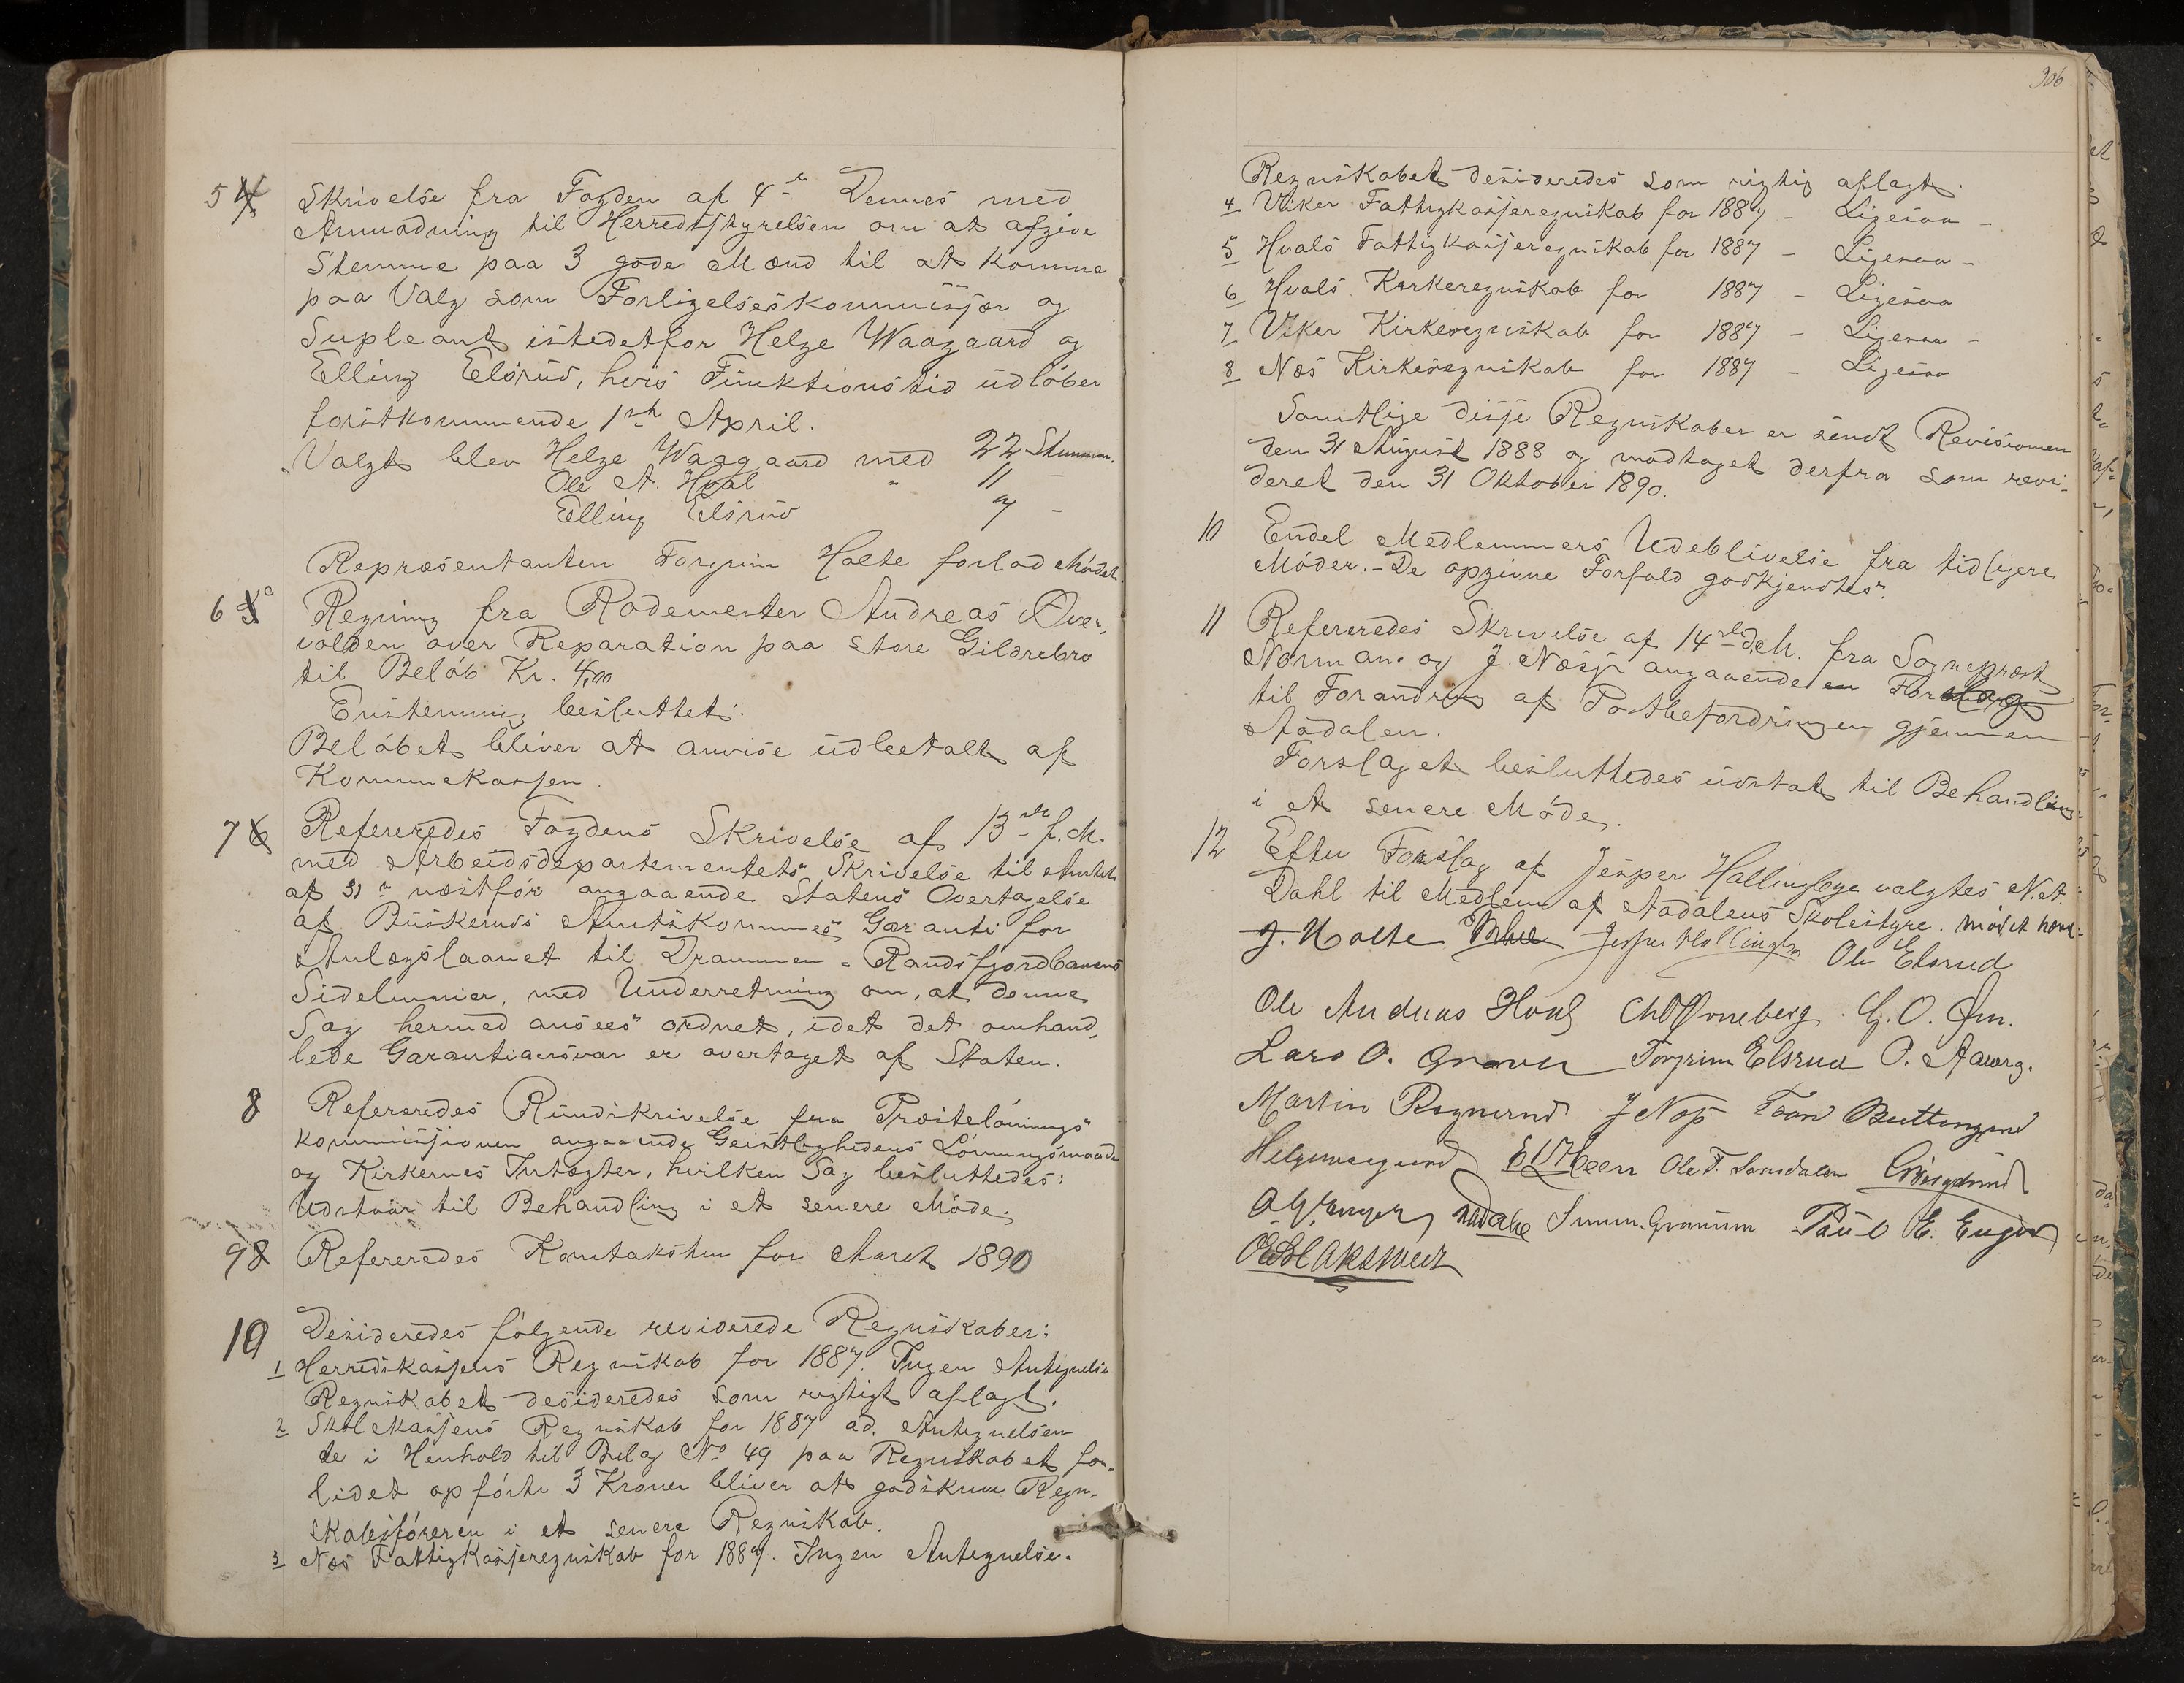 5 Skrivelse fra Fogden af 4de Dennes med
Anmodning til Herredsstyrelsen om at afgive
Stemme paa 3 gode Mænd til at komme
paa Valg som Forligelseskommissær og
Supleant istedetfor Helge Waagaard og
Elling Elsrud, hvis Funktionstid udløber
førstkommende 1ste April.
Valgt blev Helge Waagaard med 22 Stemmer.
Ole A. Hval " 11 -
Elling Elsrud 7 -
Repræsentanten Torgrim Holte forlod Mødet.
6 Regning fra Rodemester Andreas Over-
volden over Reparation paa store Gildrebro
til Beløb Kr. 4,00
Enstemmig besluttet:
Beløbet bliver at anvise udbetalt af
Kommunekassen.
7 Refereredes Fogdens Skrivelse af 13de f.M.
med Arbeidsdepartementets Skrivelse til Amtet
af 31te næstfør angaaende Statens Overtagelse
af Buskeruds Amtskommunes Garanti for
Anlægslaanet til Drammen-Randsfjordbanens
Sidelinnier, med Underretning om, at denne
Sag hermed ansees ordnet, idet det omhand-
lede Garantiansvar er overtaget af Staten.
8 Refereredes Rundskrivelse fra Præstelønnings
kommissionen angaaende Geistlighedens Lønningsmaade
og Kirkernes Indtægter, hvilken Sag besluttedes:
Udstaar til Behandling i et senere Møde.
98 Refereredes Korntaksten for March 1890
10 Desideredes følgende reviderede Regnskaber:
1 Herredskassens Regnskab for 1887. Ingen Antegnelse
Regnskabet desideredes som rigtigt aflagt.
2 Skolekassens Regnskab for 1887 ad. Antegnelsen
de i Henhold til Bilag No 49 paa Regnskabet for-
lidet opførte 3 Kroner bliver at godskrive Regn-
skabsføreren i et senere Regnskab.
3 Næs Fattigkasseregnskab for 1887. Ingen Antegnelse.
306
Regnskabet desideredes som rigtig aflagt.
4 Viker Fattigkasseregnskab for 1887 - Ligesaa -
5 Hvals Fattigkasseregnskab for 1887 - Ligesaa -
6 Hvals Kirkeregnskab for 1887 - Ligesaa
7 Viker Kirkeregnskab for 1887 - Ligesaa -
8 Næs Kirkeregnskab for 1887 - Ligesaa
Samtlige disse Regnskaber er sendt Revisionen
den 31 August 1888 og modtaget derfra som revi-
deret den 31 Oktober 1890.
10 Endel Medlemmers Udeblivelse fra tidligere
Møder. - De opgivne Forfald godkjendtes.
11 Refereredes Skrivelse af 14de d.M. fra Sogneprest
Normann og J. Næss angaaende en Forslag
til Forandring af Postbefordringen gjennem
Aadalen.
Forslaget besluttedes udsat til Behandling
i et senere Møde.
12 Efter Forslag af Jesper Hallingby valgtes N.A.
Dahl til Medlem af Aadalens Skolestyre. Mødet hævet
J. Holte Jesper Hallingby Ole Elsrud
Ole Andreas Hval G. O.
Lars O. Graver Torgrim Elsrud O. Aaberg.
Martin Ragnerud J Næs
Helge Waagaard Ole T.
Paul E. Enger